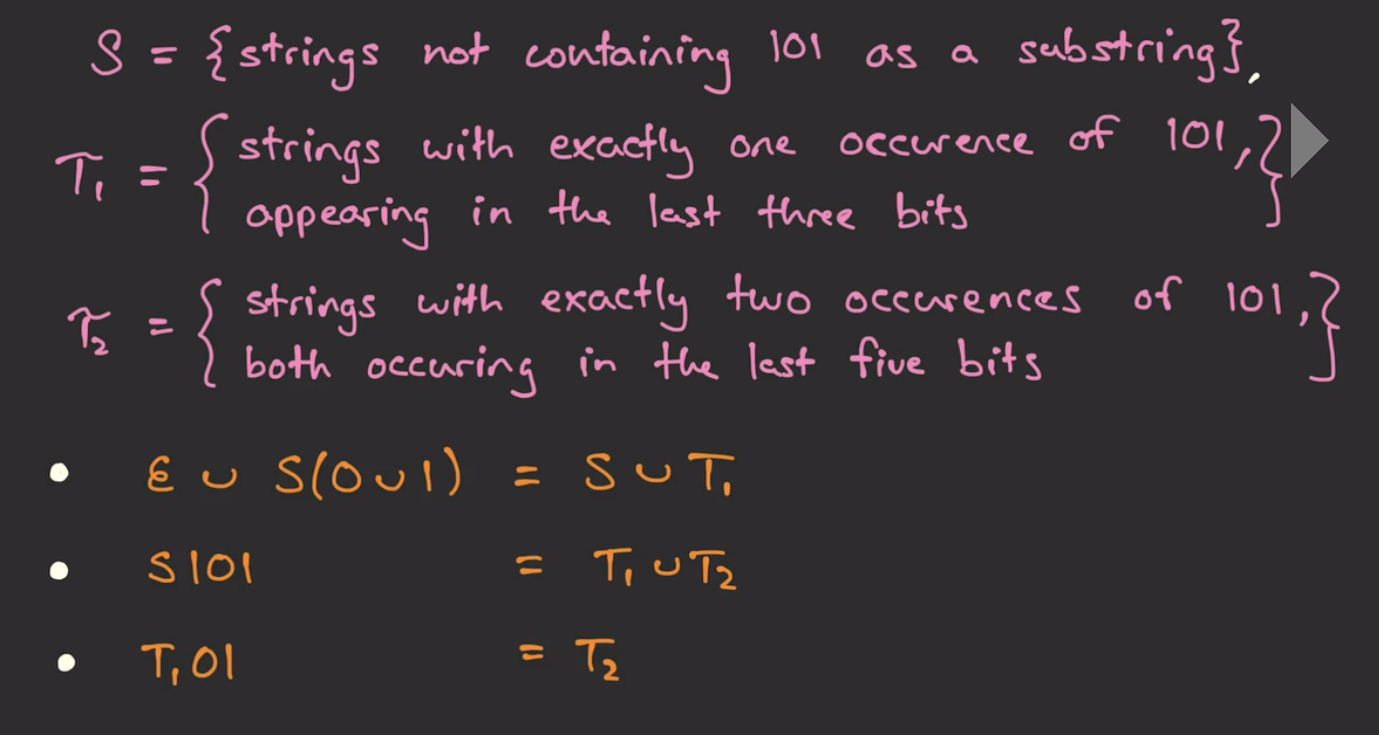 S = {strings not containing 101 as a substring},
T₁ = { strings with exactly one occurence of 101, }
appearing in the last three bits
T₂ = { strings with exactly two occurences of 101, }
both occuring in the last five bits
• ε ∪ S(0∪1) = S ∪ T₁
• S101 = T₁ ∪ T₂
• T₁01 = T₂